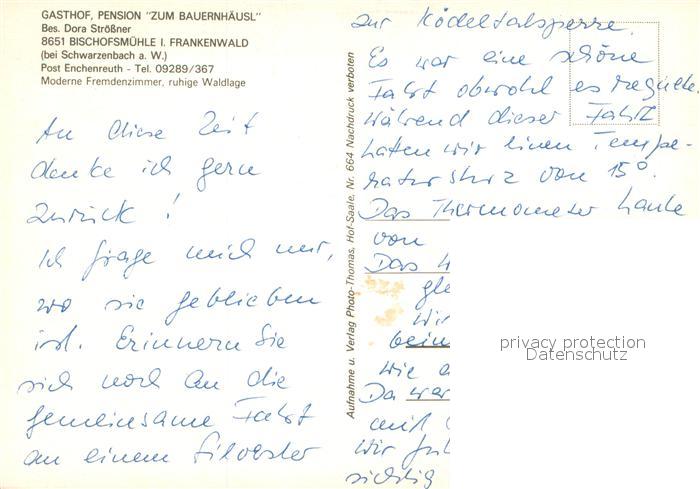 GASTHOF, PENSION "ZUM BAUERNHÄUSL"
Bes. Dora Strößner
8651 BISCHOFSMÜHLE I. FRANKENWALD
(bei Schwarzenbach a. W.)
Post Enchenreuth - Tel. 09289/367
Moderne Fremdenzimmer, ruhige Waldlage
An diese Zeit
denke ich gern
zurück!
Ich frage mich nur,
wo sie geblieben
ist. Erinnern Sie
sich noch an die
gemeinsame Fahrt
an einem Silvester
Aufnahme u. Verlag Photo-Thomas, Hof-Saale, Nr. 664 Nachdruck verboten
zur Ködeltalsperre.
Es war eine schöne
Fahrt obwohl es regnete.
Während dieser Fahrt
hatten wir einen Tempe-
ratursturz von 15°.
Das Thermometer sank
von
Das
wir
wie
Da war
mit
wir
sichtig
privacy protection
Datenschutz